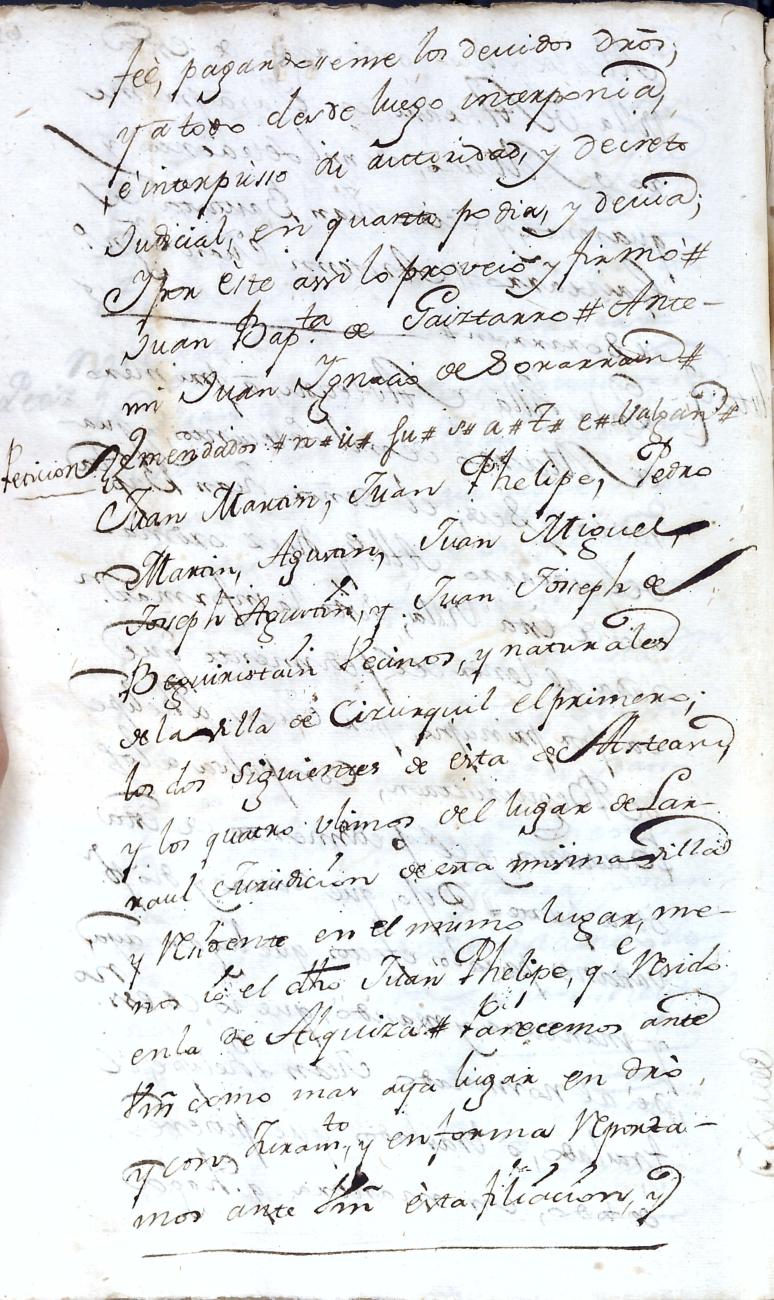 feè, pagandoseme los devidos drōs;
y a todo desde luego interponia,
è interpusso su auttoridad, y decreto
Judicial, en quanto podia, y devia;
Y por este assi lo proveiò y firmò #
Juan Bap.ta de Gaiztarro # Ante-
mi Juan Ygnacio de Sorarrain #
Emendados # n # u # su # s # a # t # e # Valgan #
Peticion
Juan Martin, Juan Phelipe, Pedro
Martin, Agustin, Juan Miguel,
Joseph Agustin, y Juan Joseph de
Beguiristain Vecinos, y naturales
de la villa de Cizurquil el primero;
los dos siguientes de esta de Asteasu,
y los quatro ultimos del lugar de Lar-
raul Jurisdicion de esta misma villa
y Residente en el mismo lugar, me-
nos io el dho Juan Phelipe, q.e Resido
en la de Alquiza # Parecemos ante
Vm como mas aya lugar en dro,
y con Juram.to, y en forma Reporta-
mos ante Vm èsta filiacion, y